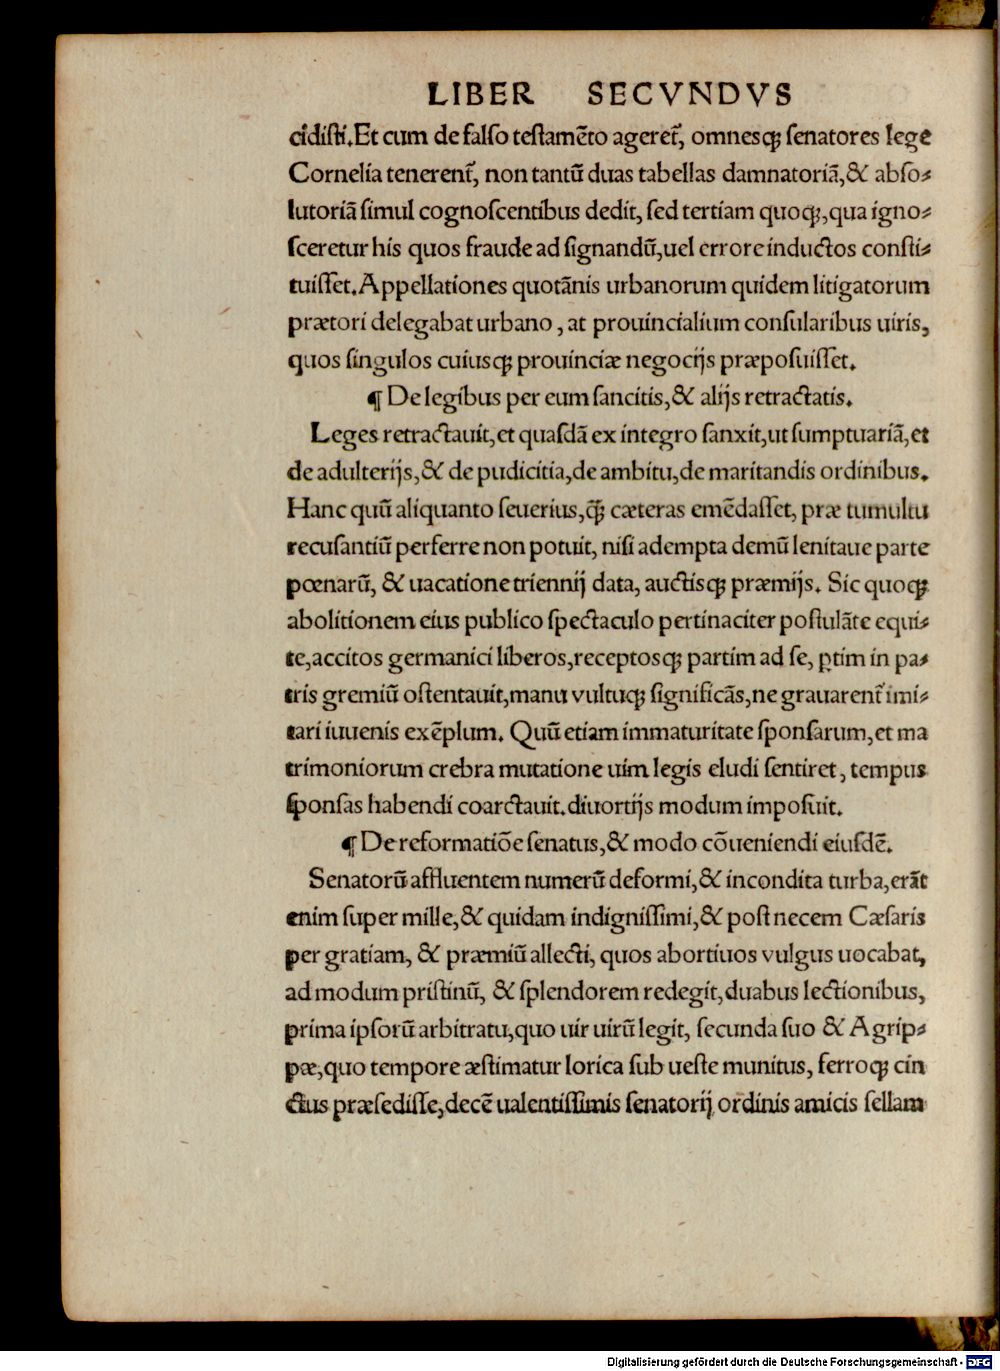 LIBER SECVNDVS
cidisti.Et cum de falso testamēto ageret᷑, omnesq; senatores lege
Cornelia tenerent᷑, non tantū duas tabellas damnatoriā,& abso⸗
lutoriā simul cognoscentibus dedit, sed tertiam quoq;,qua igno⸗
sceretur his quos fraude ad signandū,uel errore inductos consti⸗
tuisset.Appellationes quotānis urbanorum quidem litigatorum
prætori delegabat urbano, at prouincialium consularibus uiris,
quos singulos cuiusq; prouinciæ negocijs præposuisset.
¶ De legibus per eum sancitis,& alijs retractatis.
Leges retractauit,et quasdā ex integro sanxit,ut sumptuariā,et
de adulterijs,& de pudicitia,de ambitu,de maritandis ordinibus.
Hanc quū aliquanto seuerius,q̄; cæteras emēdasset, præ tumultu
recusantiū perferre non potuit, nisi adempta demū lenitaue parte
pœnarū, & uacatione triennij data, auctisq; præmijs. Sic quoq;
abolitionem eius publico spectaculo pertinaciter postulāte equi⸗
te,accitos germanici liberos,receptosq; partim ad se, ꝑtim in pa⸗
tris gremiū ostentauit,manu vultuq; significās,ne grauarent᷑ imi⸗
tari iuuenis exēplum. Quū etiam immaturitate sponsarum,et ma
trimoniorum crebra mutatione uim legis eludi sentiret, tempus
sponsas habendi coarctauit.diuortijs modum imposuit.
¶ De reformatiōe senatus,& modo cōueniendi eiusdē.
Senatorū affluentem numerū deformi,& incondita turba,erāt
enim super mille,& quidam indignissimi,& post necem Cæsaris
per gratiam, & præmiū allecti, quos abortiuos vulgus uocabat,
ad modum pristinū, & splendorem redegit,duabus lectionibus,
prima ipsorū arbitratu,quo uir uirū legit, secunda suo & Agrip⸗
pæ,quo tempore æstimatur lorica sub ueste munitus, ferroq; cin
ctus præsedisse,decē ualentissimis senatorij ordinis amicis sellam
Digitalisierung gefördert durch die Deutsche Forschungsgemeinschaft - DFG